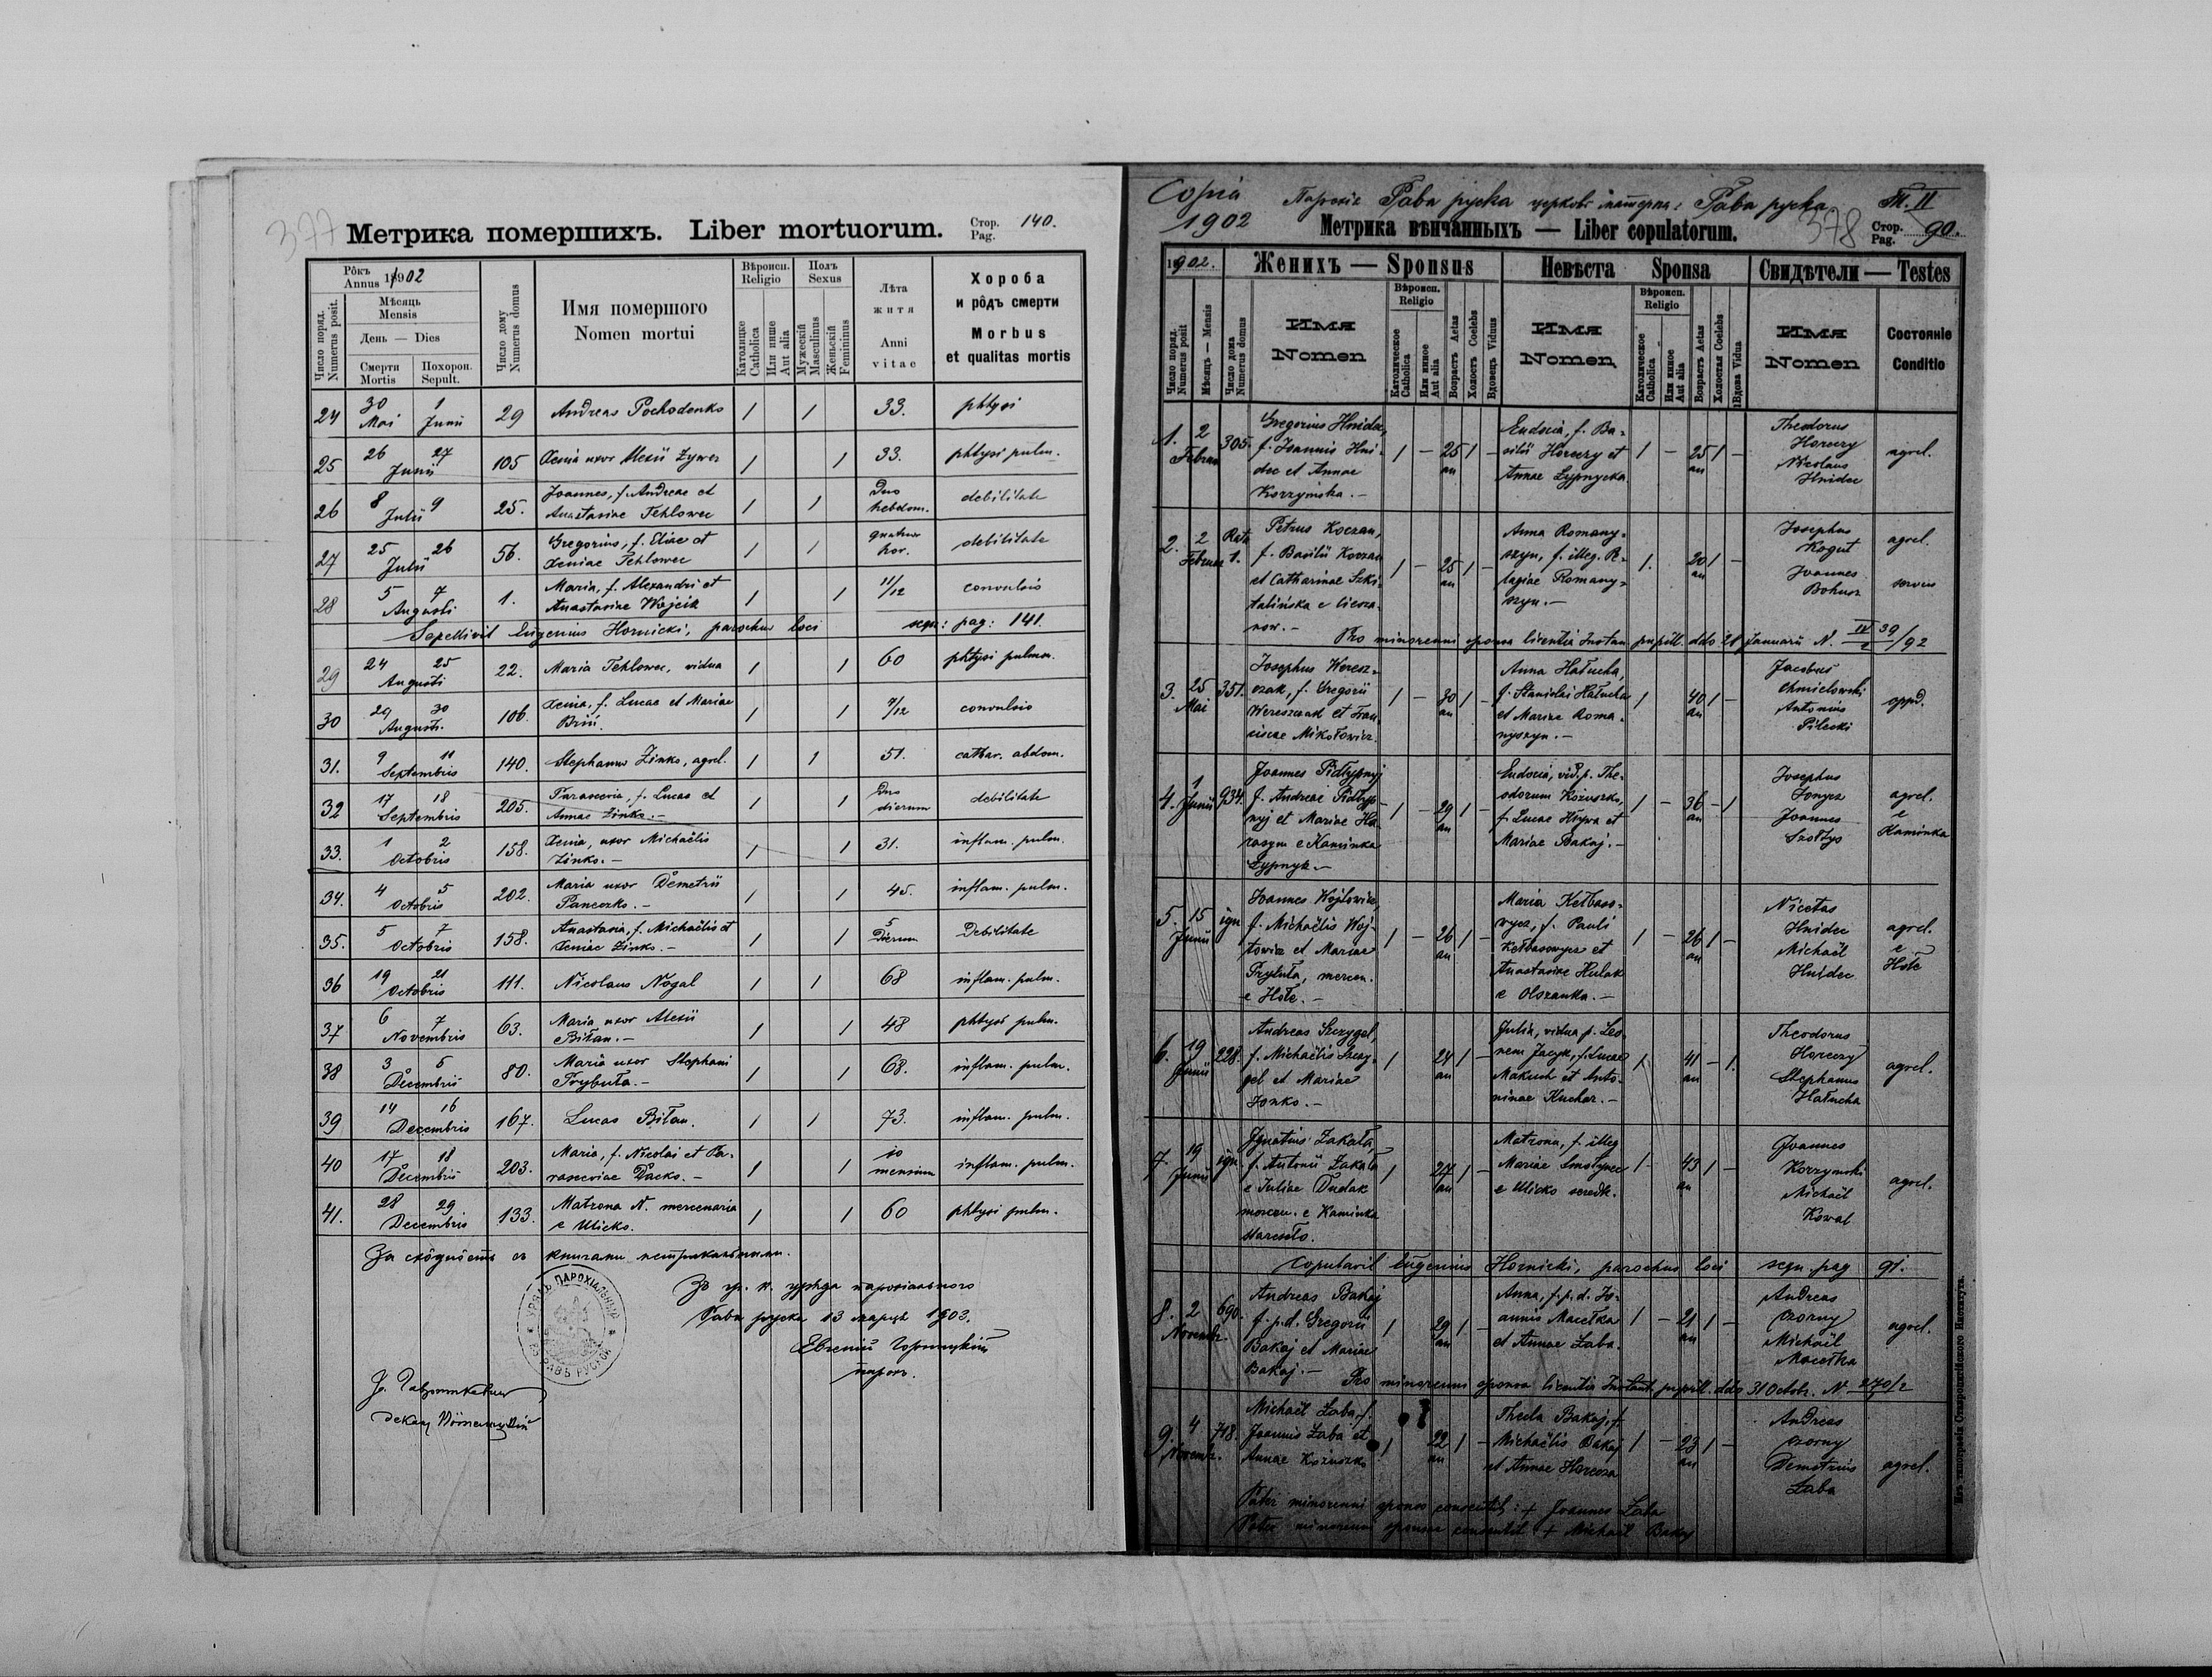 377
Метрика помершихъ. Liber mortuorum.
Стор. Pag. 140.
Рôкъ Annus 1902
Число поряд. Numerus posit.
Мѣсяць Mensis
День — Dies
Смерти Mortis
Похорон. Sepult.
Число дому Numerus domus
Имя помершого
Nomen mortui
Вѣроисп. Religio
Католицке Catholica
Или инше Aut alia
Полъ Sexus
Мужескій Masculinus
Женьскій Femininus
Лѣта житя
Anni vitae
Хороба
и рôдъ смерти
Morbus
et qualitas mortis
24 30 Mai 1 Junii 29 Andreas Pochodenko / / 33. phtysi
25 26 27 Junii 105 Xenia uxor Alexii Zywer / / 33. phtysi pulm.
26 8 9 Julii 25. Joannes, f. Andreae et
Anastasiae Tehlowec / / Duo hebdom. debilitate
27 25 26 Julii 56. Gregorius, f. Eliae et
Xeniae Tehlowec / / quatuor hor. debilitate
28 5 7 Augusti 1. Maria, f. Alexandri et
Anastasiae Wojcik / / 11/12 convulsio
Sepelivit Eugenius Hornicki, parochus loci sequ: pag: 141.
29 24 25 Augusti 22. Maria Tehlowec, vidua / / 60 phtysi pulmon.
30 29 30 Augusti. 106. Xenia, f. Lucae et Mariae
/ / convulsio
31. 9 11 Septembris 140. Stephanus Zinko, agrel. / / 51. cathar. abdom.
32 17 18 Septembris 205. Parascevia, f. Lucae et
Annae Zinko.- / / Duo dierum debilitate
33. 1 2 Octobris 158. Xenia, uxor Michaëlis
Zinko.- / / 31. inflam. pulm.
34. 4 5 Octobris 202. Maria uxor Demetrii
Panczko.- / / 45. inflam. pulm.
35. 5 7 Octobris 158. Anastasia, f. Michaëlis et
Xeniae Zinko.- / / 5 Dierum Debilitate
36 19 21 Octobris 111. Nicolaus Nogal / / 68 inflam. pulm.
37 6 7 Novembris 63. Maria uxor Alexii
Biłan.- / / 48 phtysi pulm.
38 3 5 Decembris 80. Maria uxor Stephani
Prybuła.- / / 68. inflam. pulm.
39 14 16 Decembris 167. Lucas Biłan. / / 73. inflam. pulm.
40 17 18 Decembris 203. Maria, f. Nicolai et Pa-
rasceviae Dacko.- / / 10 mensium inflam. pulm.
41. 28 29 Decembris 133. Matrona N. mercenaria
e Ulicko. / / 60 phtysi pulm.
За сходнôсть съ книгами метрикальными.
Зъ гр. к. уряда парохіального
Рава руска 13 марця 1903.
Евгеній Горницкій
парох.
декан
Copia
1902
Парохія Рава руска церковь матерна: Рава руска T. II
Метрика вѣнчанныхъ — Liber copulatorum.
378
Стор. Pag. 90.
1902.
Женихъ — Sponsus
Невѣста Sponsa
Свидѣтели — Testes
Число поряд. Numerus posit
Мѣсяць — Mensis
Число дома Numerus domus
Имя Nomen
Вѣроисп. Religio
Католическое Catholica
Или инное Aut alia
Возрастъ Aetas
Холостъ Coelebs
Вдовець Viduus
Имя Nomen
Вѣроисп. Religio
Католическое Catholica
Или инное Aut alia
Возрастъ Aetas
Холостая Coelebs
Вдова Vidua
Имя Nomen
Состояніе
Conditio
1. 2 Februar 305. Gregorius Hnidec,
f. Joannis Hni-
dec et Annae
Korzynska.-
/ — 25 an / —
Eudocia, f. Ba-
silii Horeczy et
Annae Łypnycka
/ — 25 an / —
Theodorus
Horeczy
Nicolaus
Hnidec
agrel.
2. 2 Februar Rata 1. Petrus Koczan,
f. Basilii Koczan
et Catharinae Szki-
/ — 25 an / —
Anna Romany-
szyn, f. illeg. Pe-
lagiae Romany-
szyn.-
/. 20 an / —
Josephus
Kogut
Joannes
Bohusz
agrel.
servus
Pro minorenni sponsa licentia Instan. pupill. ddo 28 Januarii N. IV 39/2/92
3. 25 Mai 351. Josephus Weresz-
czak, f. Gregorii
Wereszczak et Fran-
ciscae Mikołowicz.
/ — 30 an / —
Anna Hałucha,
f. Stanislai Hałucha
et Mariae Roma-
nyszyn.-
/ 40 an / —
Jacobus
Chmielowski
Antonius
Pilecki
oppid.
4. 1 Junii 934. Joannes Pidłypnyj
f. Andreae Pidłyp-
nyj et Mariae Ha-
rasym e Kaminka
Łypnyk.-
/ — 29 an / —
Eudocia, vid. p. The-
odorum Kożuszko,
f. Lucae Hrywa et
Mariae Bakaj.-
/ — 36 an — /
Josephus
Joannes
Szołtys
agrel.
e
Kaminka
5. 15 Junii ign Joannes Wojtowicz,
f. Michaëlis Woj-
towicz et Mariae
Prybuła, mercen.
e Hołe.-
/ — 26 an / —
Maria Kełbaso-
wycz, f. Pauli
Kełbasowycz et
Anastasiae Hulak
e Olszanka.-
/ — 26 an / —
Nicetas
Hnidec
Michaël
Hnidec
agrel.
e
Hołe
6. 19 Junii 228. Andreas Szczygel,
f. Michaëlis Szczy-
gel et Mariae
Zonko.-
/ 24 an / —
Julia, vidua p. Leo-
nem Jacyk, f. Lucae
Makuch et Anto-
ninae Kuchar.-
/ 41 an — /.
Theodorus
Horeczy
Stephanus
Hałucha
agrel.
7. 19 Junii ign Ignatius Zakała,
f. Antonii Zakała
e Juliae Dudak
mercen. e Kaminka
/ 27 an / —
Matrona, f. illeg
Mariae Smołynec
e Ulicko seredk.
/ 43 an / —
Joannes
Korzynski
Michaël
Kowal
agrel.
Copulavit Eugenius Hornicki, parochus loci sequ. pag 91.
8. 2 Novembr. 690. Andreas Bakaj
f. p.d. Gregorii
Bakaj et Mariae
Bakaj.-
/ 29 an / —
Anna, f. p.d. Jo-
annis Macełka
et Annae Łaba.
/ — 21 an / —
Andreas
Czorny
Michaël
Macełka
agrel.
Pro minorenni sponsa licentia Instant. pupill. ddo 31 Octobr. N. 270/2
9. 4 Novembr. 718. Michaël Łaba, f.
Joannis Łaba et
Annae Kożuszko
/ 22 an / —
Thecla Bakaj, f.
Michaëlis Bakaj
et Annae Horecza
/ — 23 an / —
Andreas
Czorny
Demetrius
Łaba
agrel.
Pater minorenni sponso consentit: + Joannes Łaba
Pater minorenni sponsae consentit + Michaël Bakaj
Изъ типографіи Ставропигійского Института.